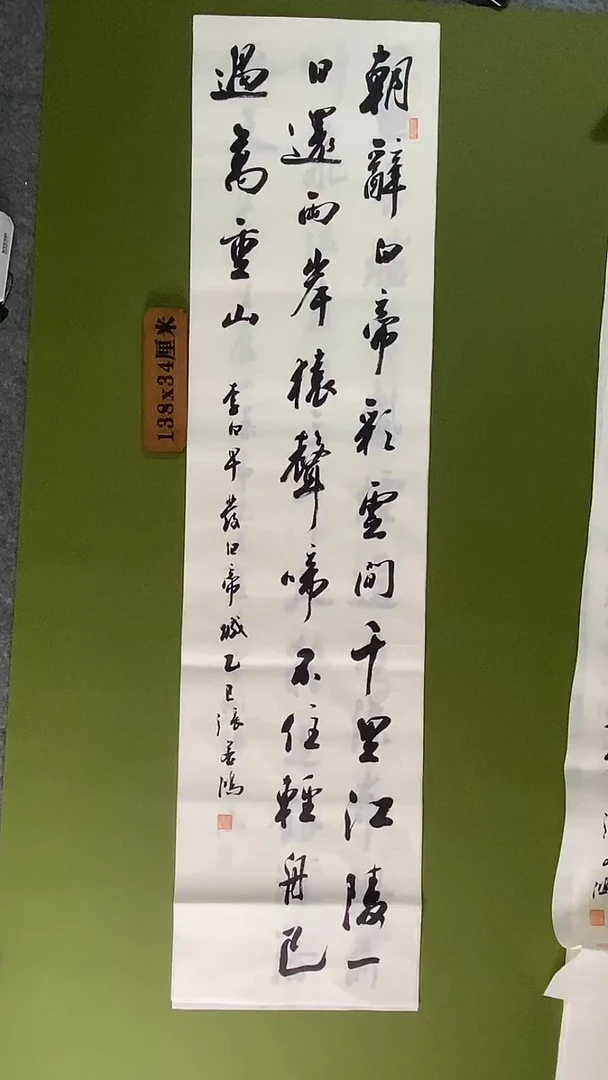 朝辭白帝彩雲間千里江陵一
日還兩岸猿聲啼不住輕舟已
過萬重山
李白早發白帝城乙巳張若鴻
138x34厘米